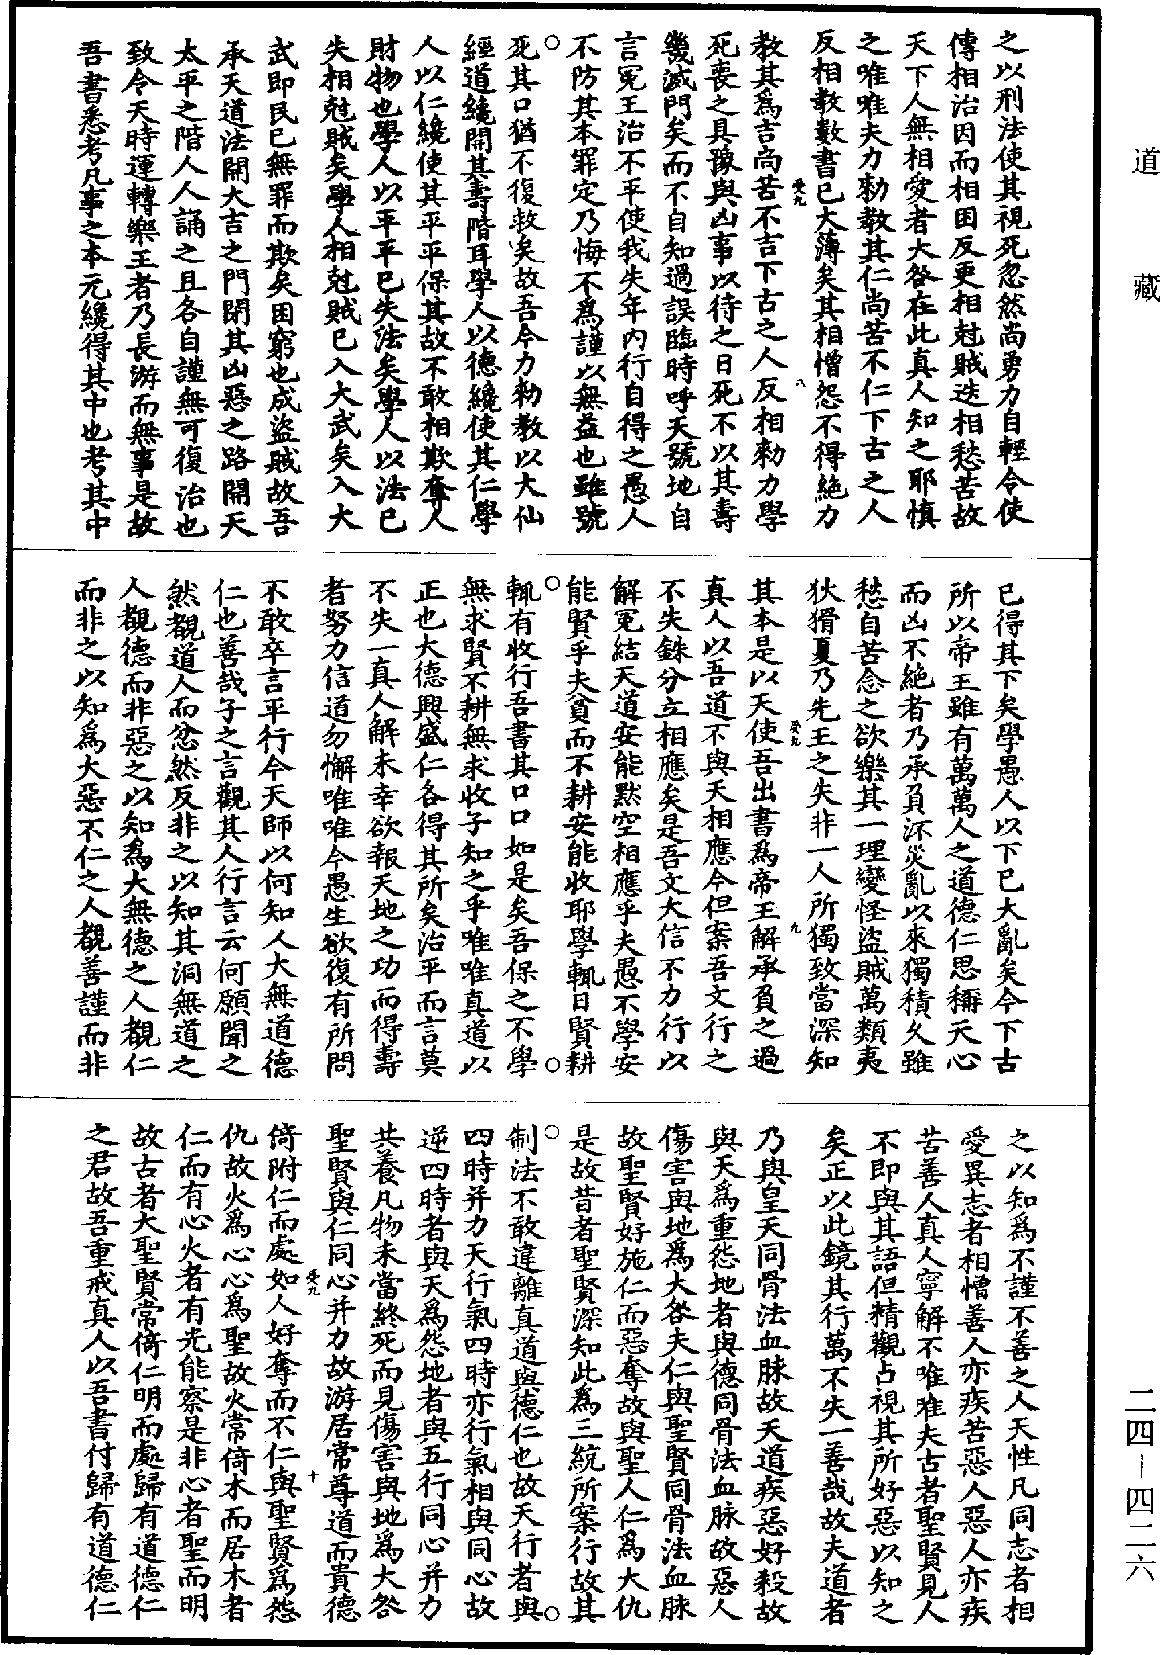 道藏
之以刑法使其視死忽然尚勇力自輕令使
傳相治因而相困反更相尅賊迭相愁苦故
天下人無相愛者大咎在此真人知之耶慎
之唯唯夫力勑教其仁尚苦不仁下古之人
反相教數書已大薄矣其相憎怨不得絶力
受九 八
教其爲吉尚苦不吉下古之人反相勑力學
死喪之具豫與凶事以待之日死不以其壽
幾滅門矣而不自知過誤臨時呼天號地自
言冤王治不平使我失年内行自得之愚人
不防其本罪定乃悔不爲謹以無益也雖號
死其口猶不復救矣故吾今力勑教以大仙
經道纔開其壽階耳學人以德纔使其仁學
人以仁纔使其平平保其故不敢相欺奪人
財物也學人以平平已失法矣學人以法已
失相尅賊矣學人相尅賊已入大武矣入大
武即民已無罪而欺矣困窮也成盜賊故吾
承天道法開大吉之門閉其凶惡之路開天
太平之階人人誦之且各自謹無可復治也
致令天時運轉樂王者乃長游而無事是故
吾書悉考凡事之本元纔得其中也考其中
已得其下矣學愚人以下已大亂矣今下古
所以帝王雖有萬萬人之道德仁思稱天心
而凶不絶者乃承負𣴠災亂以來獨積久雖
愁自苦念之欲樂其一理變怪盜賊萬類夷
狄猾夏乃先王之失非一人所獨致當深知
受九 九
其本是以天使吾出書爲帝王解承負之過
真人以吾道不與天相應今但案吾文行之
不失銖分立相應矣是吾文大信不力行以
解冤結天道安能默空相應乎夫愚不學安
能賢乎夫貧而不耕安能收耶學輒日賢耕
輒有收行吾書其口口如是矣吾保之不學
無求賢不耕無求收子知之乎唯唯真道以
正也大德興盛仁各得其所矣治平而言莫
不失一真人解未幸欲報天地之功而得壽
者努力信道勿懈唯唯今愚生欲復有所問
不敢卒言平行今天師以何知人大無道德
仁也善哉子之言觀其人行言云何願聞之
然覩道人而忿然反非之以知其洞無道之
人覩德而非惡之以知爲大無德之人覩仁
而非之以知爲大惡不仁之人覩善謹而非
之以知爲不謹不善之人天性凡同志者相
愛異志者相憎善人亦疾苦惡人惡人亦疾
苦善人真人寧解不唯唯夫古者聖賢見人
不即與其語但精觀占視其所好惡以知之
矣正以此鏡其行萬不失一善哉故夫道者
乃與皇天同骨法血脉故天道疾惡好殺故
與天爲重怨地者與德同骨法血脉故惡人
傷害與地爲大咎夫仁與聖賢同骨法血脉
故聖賢好施仁而惡奪故與聖人仁爲大仇
是故昔者聖賢深知此爲三統所案行故其
制法不敢違離真道與德仁也故天行者與
四時并力天行氣四時亦行氣相與同心故
逆四時者與天爲怨地者與五行同心并力
共養凡物未當終死而見傷害與地爲大咎
聖賢與仁同心并力故游居常尊道而貴德
受九 十
倚附仁而處如人好奪而不仁與聖賢爲怨
仇故火爲心心爲聖故火常倚木而居木者
仁而有心火者有光能察是非心者聖而明
故古者大聖賢常倚仁明而處歸有道德仁
之君故吾重戒真人以吾書付歸有道德仁
二四—四二六